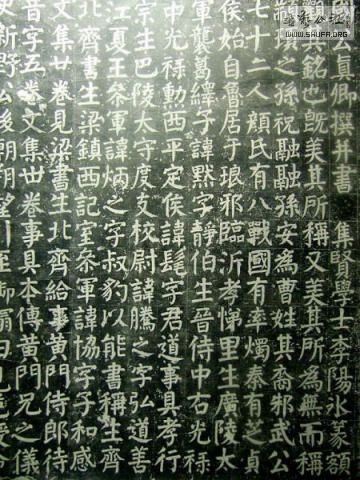 國公真卿撰并書 集賢學士李陽冰篆額
其銘也旣美其所稱又美其所為無而稱
之孫祝融融孫安為曹姓其裔邾武公
七十二人顏氏有八戰國有率燭秦有芝貞
侯始自魯居于琅邪臨沂孝悌里生廣陵太
軍龍葛繹子諱默字靜伯生晉侍中右光祿
中光祿勳西平定侯諱髦字君道事具孝行
字生巴陵太守度支校尉諱騰之字弘道善
江夏王叅軍諱炳之字叔豹以能書稱生齊
北齊書生梁鎮西記室叅軍諱協字子和感
文廿卷見梁書生北齊給事黃門侍郎待
音字五卷文集卅卷事具本傳黃門兄之儀
史新野公後朝朔望引至御
WWW.SHUFA.ORG